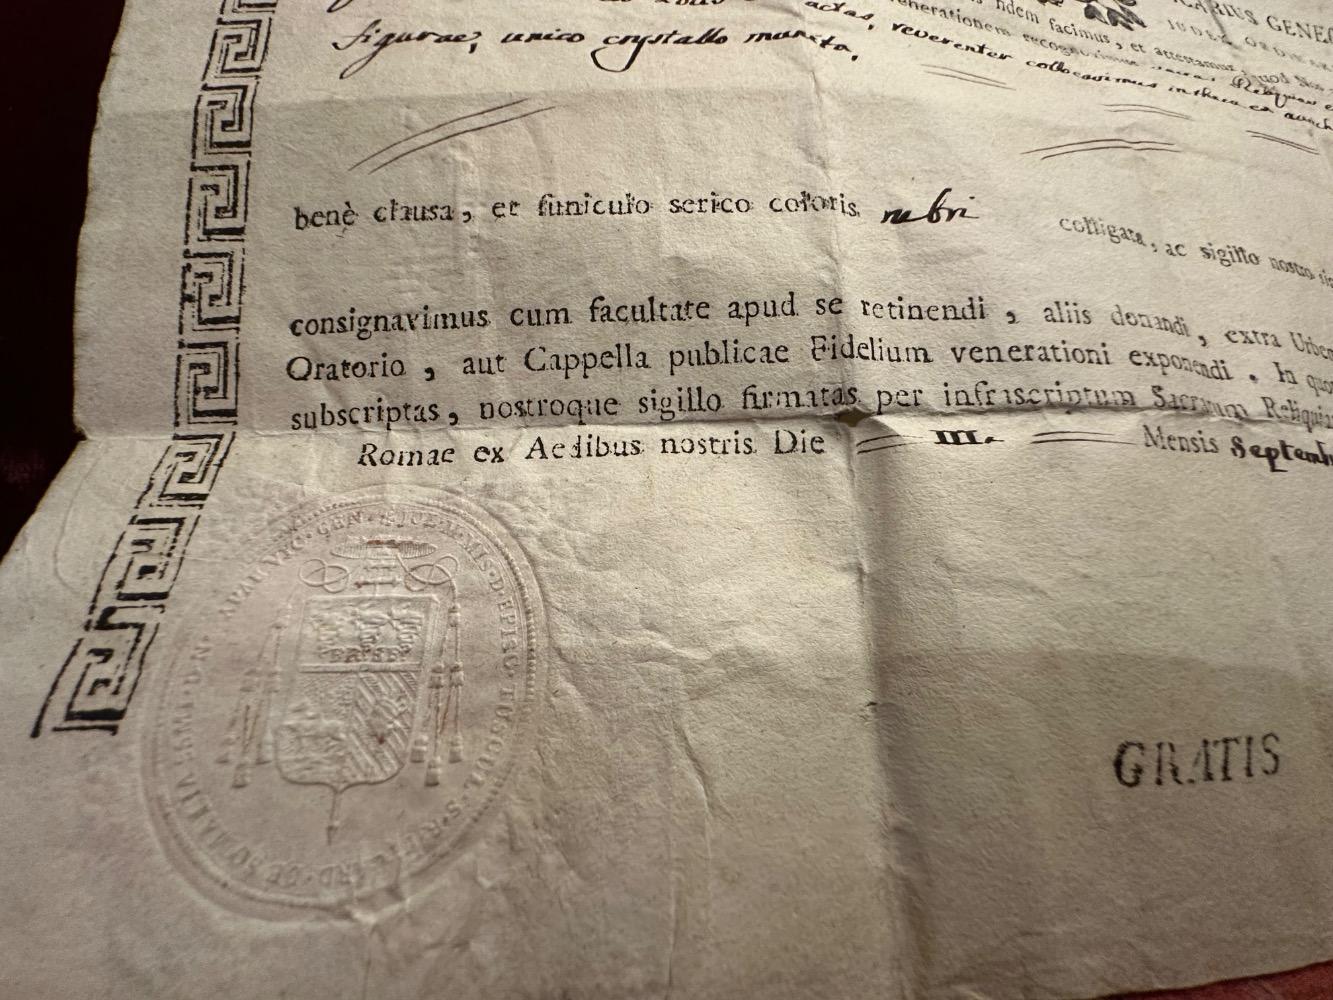 figurae, unico crystallo munita,
ICARIUS GENE
fidem facimus, et attestamur, quod
venerationem recognovimus sacras Reliquias
actas, reverenter collocavimus in theca ex
benè clausa, et funiculo serico coloris rubri colligata, ac sigillo nostro
consignavimus cum facultate apud se retinendi, aliis donandi, extra Urbem
Oratorio, aut Cappella publicae Fidelium venerationi exponendi. In quor
subscriptas, nostroque sigillo firmatas per infrascriptum Sacrarum Reliquia
Romae ex Aedibus nostris Die III. Mensis Septemb
VIC. GEN. EPISC. TUSCUL. S.R.E. CARD. DE SOMALIA
GRATIS